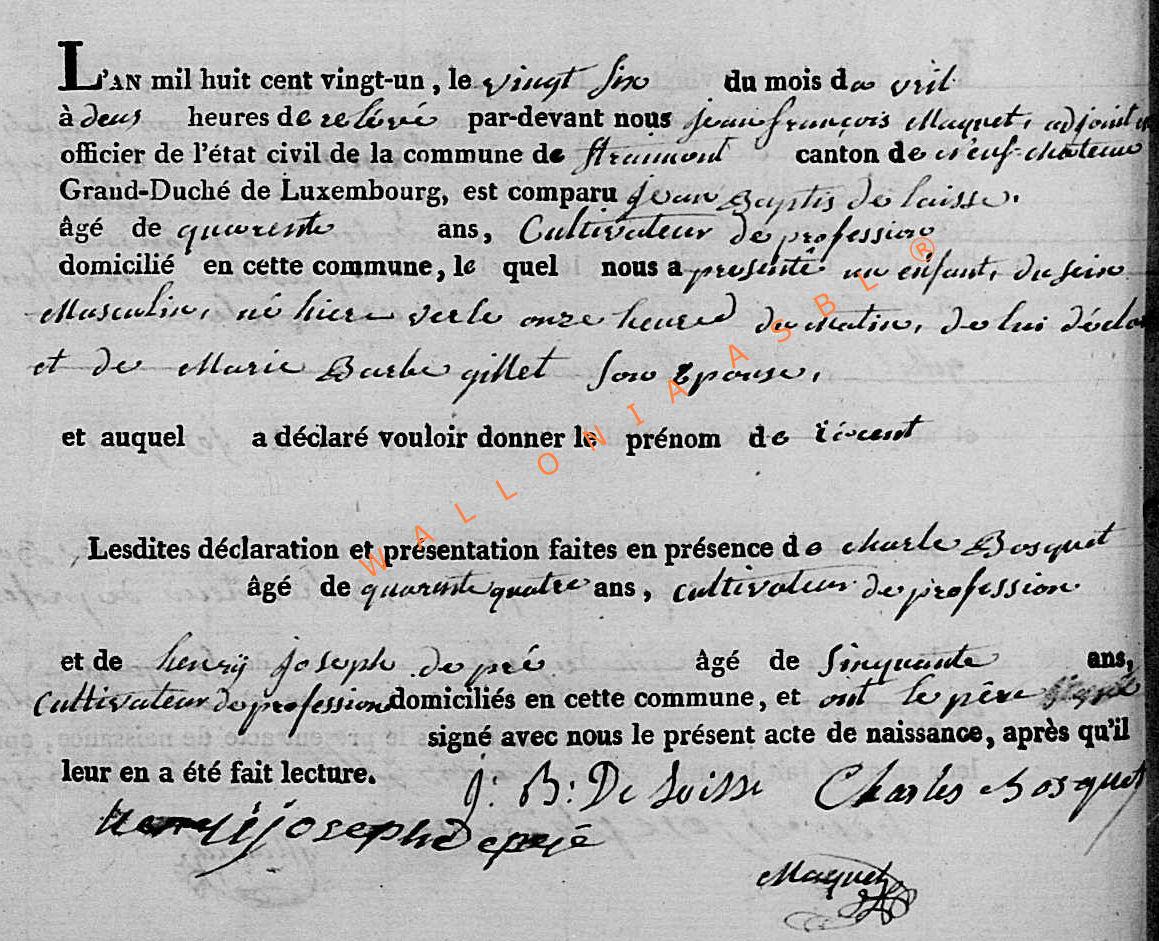 L'AN mil huit cent vingt-un, le vingt six du mois d'avril
à deus heures de relévé par-devant nous jean françois Maquet, adjoint
officier de l'état civil de la commune de straimont canton de neuf-chateau
Grand-Duché de Luxembourg, est comparu jean Baptis de laisse,
âgé de quarente ans, Cultivateur de profession
domicilié en cette commune, le quel nous a presenté un enfant, du sein
Masculin, né hiere verle onze heures du matin, de lui déclar
et de Marie Barbe gillet son Epouse,
et auquel a déclaré vouloir donner le prénom de
Lesdites déclaration et présentation faites en présence de charle Bosquet
âgé de quarente quatre ans, cultivateur de profession
et de henrÿ joseph depré âgé de sinquante ans,
Cultivateur de profession domiciliés en cette commune, et ont le père signé
signé avec nous le présent acte de naissance, après qu'il
leur en a été fait lecture. J: B: De Loisse Charles Bosquet
henrÿ joseph Depré
Maquet
WALLONIA ASBL ®